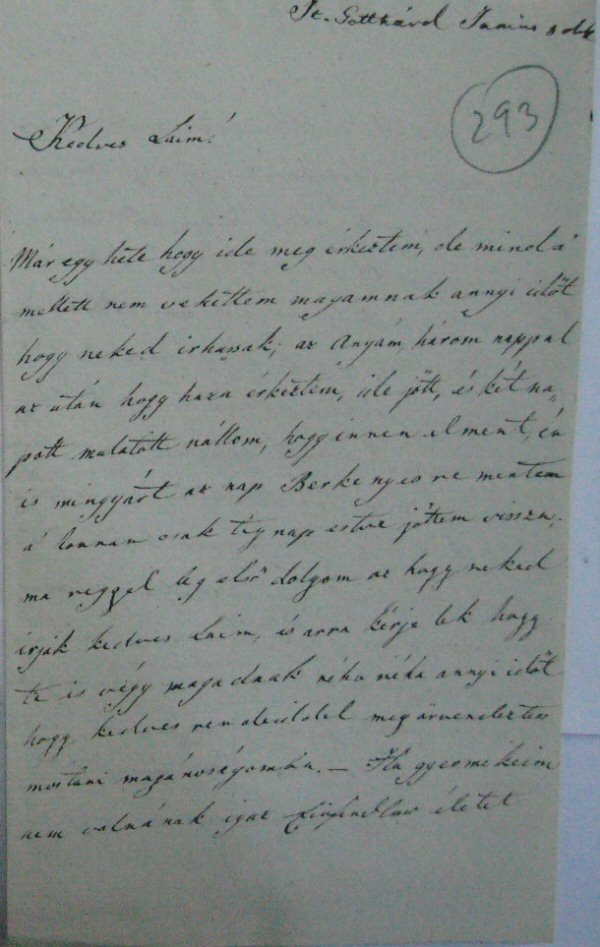 St. Gotthárd Junius 8dk
293
Kedves Laim!
Már egy hete hogy ide meg érkeztem, de mind á
mellett nem vehettem magamnak annyi időt
hogy neked irhassak; az Anyám három nappal
az után hogy haza érkeztem, ide jött, és két na„
pott mulatott nállom, hogy innen elment, én
is mingyárt az nap Berkenyesre mentem
á honnan csak tégnap estve jöttem vissza,
ma reggel leg első dolgom az hogy neked
irják kedves Laim, és arra kérjelek hogy
te is végy magadnak néha néha annyi időt
hogy kedves soraiddal meg örvendeztess
mostani magánoságomba. — Ha gyermekeim
nem volnának igaz Einsiedler életet